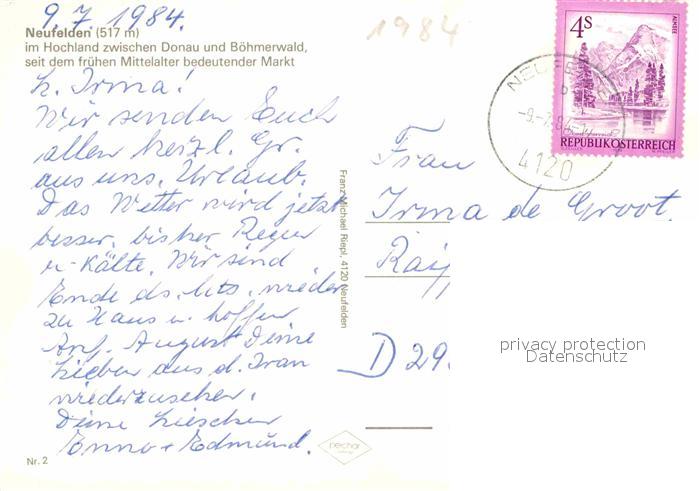 9.7.1984.
1984
Neufelden (517 m)
im Hochland zwischen Donau und Böhmerwald,
seit dem frühen Mittelalter bedeutender Markt
L. Irma!
Wir senden Euch
allen herzl. Gr.
aus uns. Urlaub.
Das Wetter wird jetzt
besser, bisher Regen
u. Kälte. Wir sind
Ende ds. Mts. wieder
zu Haus u. hoffen
Anf. August Deine
Lieben aus d. Iran
wiederzusehen.
Deine Lieschen
Enno + Edmund.
Nr. 2
Franz Michael Riepl, 4120 Neufelden
4S
ALMSEE
REPUBLIK ÖSTERREICH
4120
Frau
Irma de Groot.
D 29.
privacy protection
Datenschutz